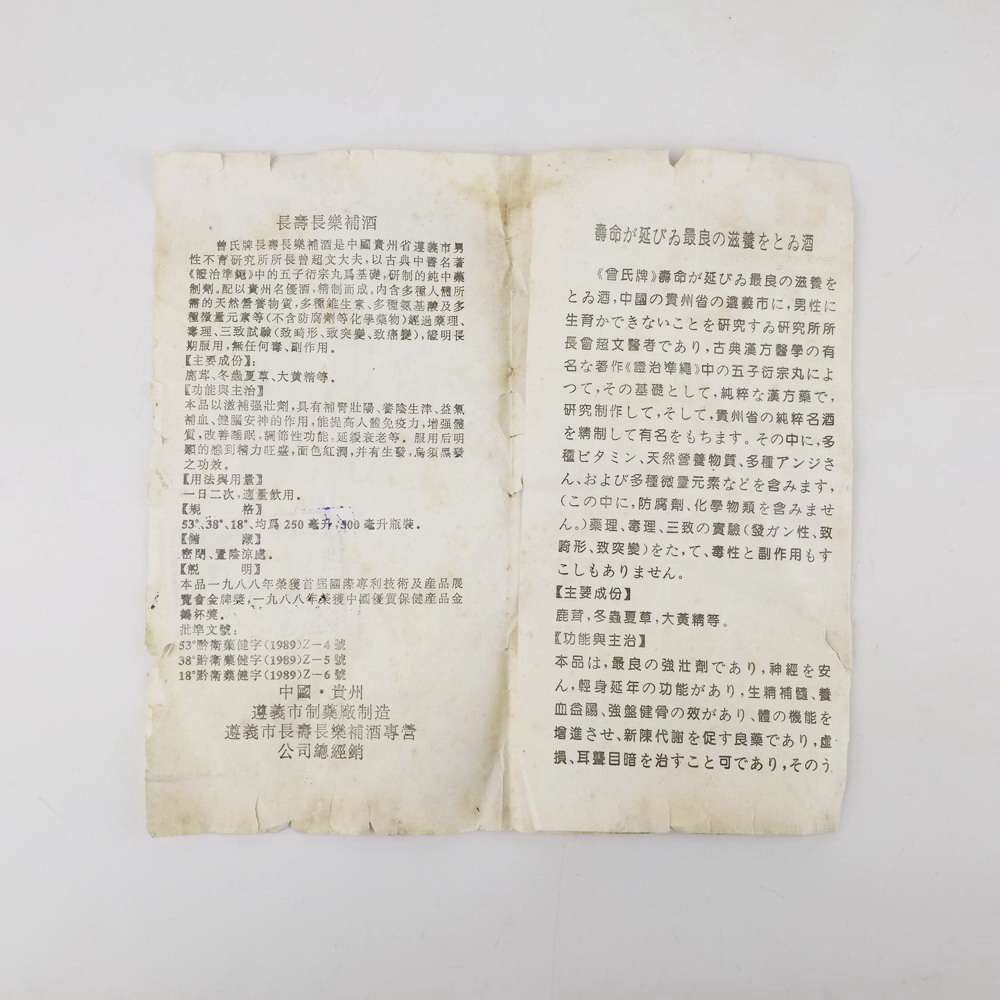 長壽長樂補酒
曾氏牌長壽長樂補酒是中國貴州省遵義市男
性不育研究所所長曾超文大夫，以古典中醫名著
《證治準繩》中的五子衍宗丸爲基礎，研制的純中藥
制劑。配以貴州名優酒，精制而成。内含多種人體所
需的天然營養物質，多種維生素、多種氨基酸及多
種微量元素等（不含防腐劑等化學藥物）經過藥理、
毒理、三致試驗（致畸形、致突變、致癌變），證明長
期服用，無任何毒、副作用。
【主要成份】：
鹿茸、冬蟲夏草、大黄精等。
【功能與主治】
本品以激補强壯劑，具有補腎壯陽、養陰生津、益氣
補血、健腦安神的作用，能提高人體免疫力，增强體
質，改善睡眠，調節性功能，延緩衰老等。服用后明
顯的感到精力旺盛，面色紅潤，并有生發，烏須黑發
之功效。
【用法與用量】
一日二次，適量飲用。
【規　　格】
53°、38°、18°、均爲 250 毫升，500 毫升瓶裝。
【儲　　藏】
密閉、置陰涼處。
【説　　明】
本品一九八八年榮獲首届國際專利技術及産品展
覽會金牌獎，一九八八年榮獲中國優質保健産品金
鶴杯獎。
批準文號：
53°黔衛藥健字(1989)Z－4 號
38°黔衛藥健字(1989)Z－5 號
18°黔衛藥健字(1989)Z－6 號
中國・貴州
遵義市制藥廠制造
遵義市長壽長樂補酒專營
公司總經銷
壽命が延びゐ最良の滋養をとゐ酒
《曾氏牌》壽命が延びゐ最良の滋養を
とゐ酒，中國の貴州省の遵義市に，男性に
生育かできないことを研究すゐ研究所所
長曾超文醫者であり，古典漢方醫學の有
名な著作《證治準繩》中の五子衍宗丸によ
つて，その基礎として，純粹な漢方藥で，
研究制作して，そして，貴州省の純粹名酒
を精制して有名をもちます。その中に，多
種ビタミン、天然營養物質、多種アンジさ
ん、および多種微量元素などを含みます，
（この中に，防腐劑、化學物類を含みませ
ん。）藥理、毒理、三致の實驗（發ガン性、致
畸形、致突變）をた，て、毒性と副作用もす
こしもありません。
【主要成份】
鹿茸，冬蟲夏草，大黄精等。
【功能與主治】
本品は，最良の強壯劑であり，神經を安
ん，輕身延年の功能があり，生精補髓、養
血益陽、強盤健骨の效があり、體の機能を
增進させ、新陳代謝を促す良藥であり，虚
損、耳聾目暗を治すこと可であり，そのう